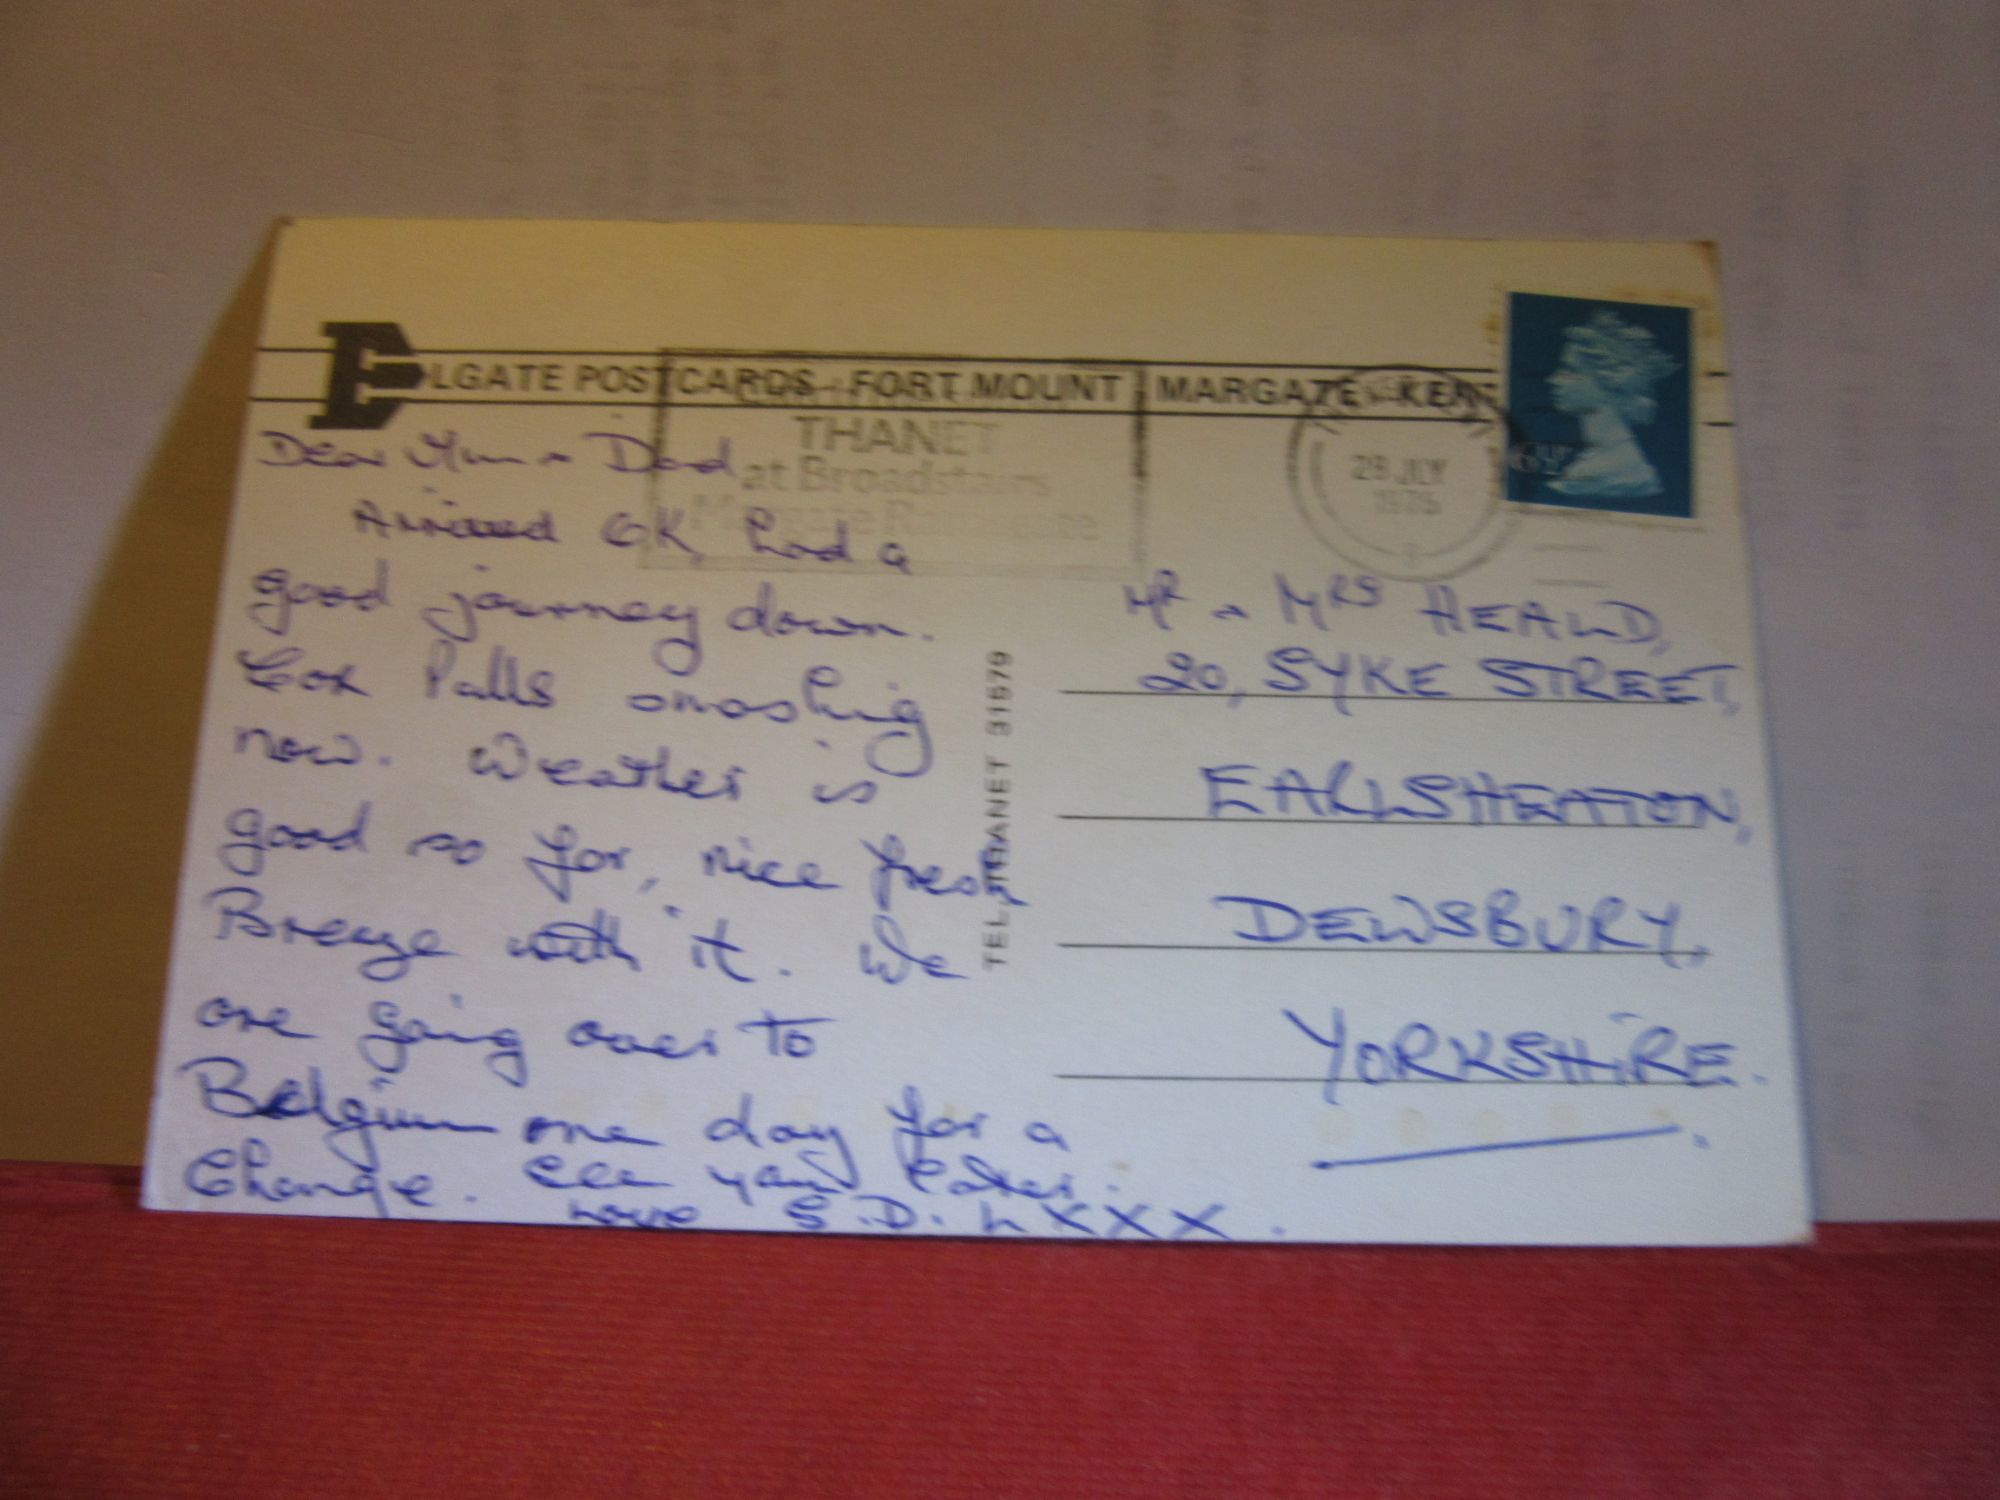 ELGATE POSTCARDS · FORT MOUNT MARGATE · KENT
THANET
at Broadstairs
Margate Ramsgate
28 JLY
1976
6½P
Dear Mum & Dad
Arrived OK, had a
good journey down.
Car Pulls smashing
now. Weather is
good so far, nice fresh
Breeze with it. We
are going over to
Belgium one day for a
Change. See you later.
Love S.D. L XXX.
TEL. THANET 31579
MR & MRS HEALD,
20, SYKE STREET,
EARLSHEATON,
DEWSBURY,
YORKSHIRE.